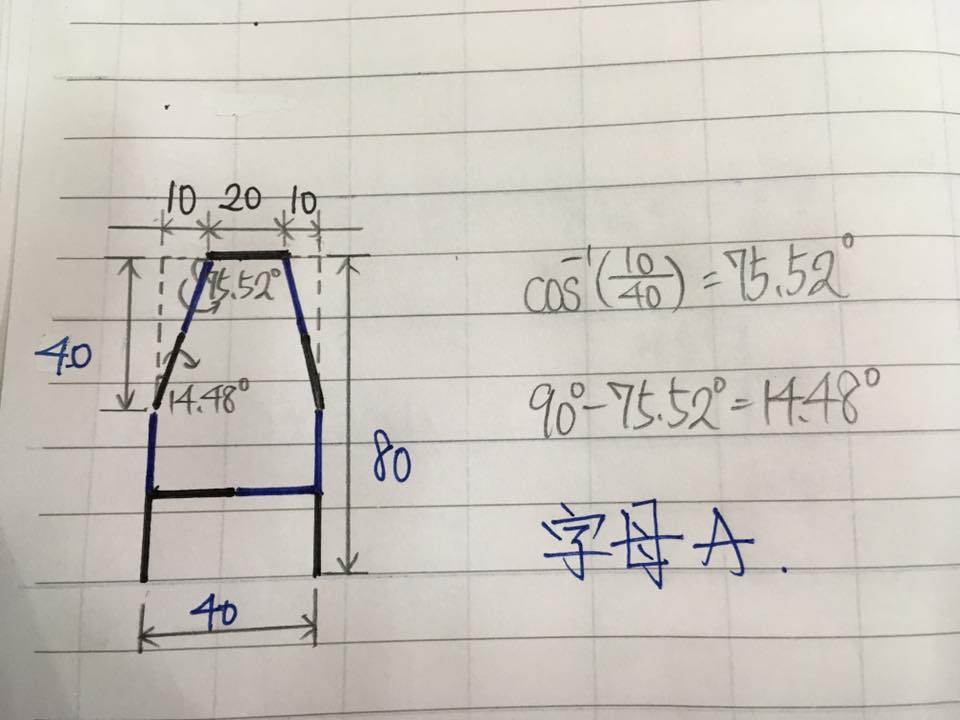 10 20 10
75.52°
40
14.48°
80
40
cos⁻¹(10/40) = 75.52°
90° - 75.52° = 14.48°
字母A.